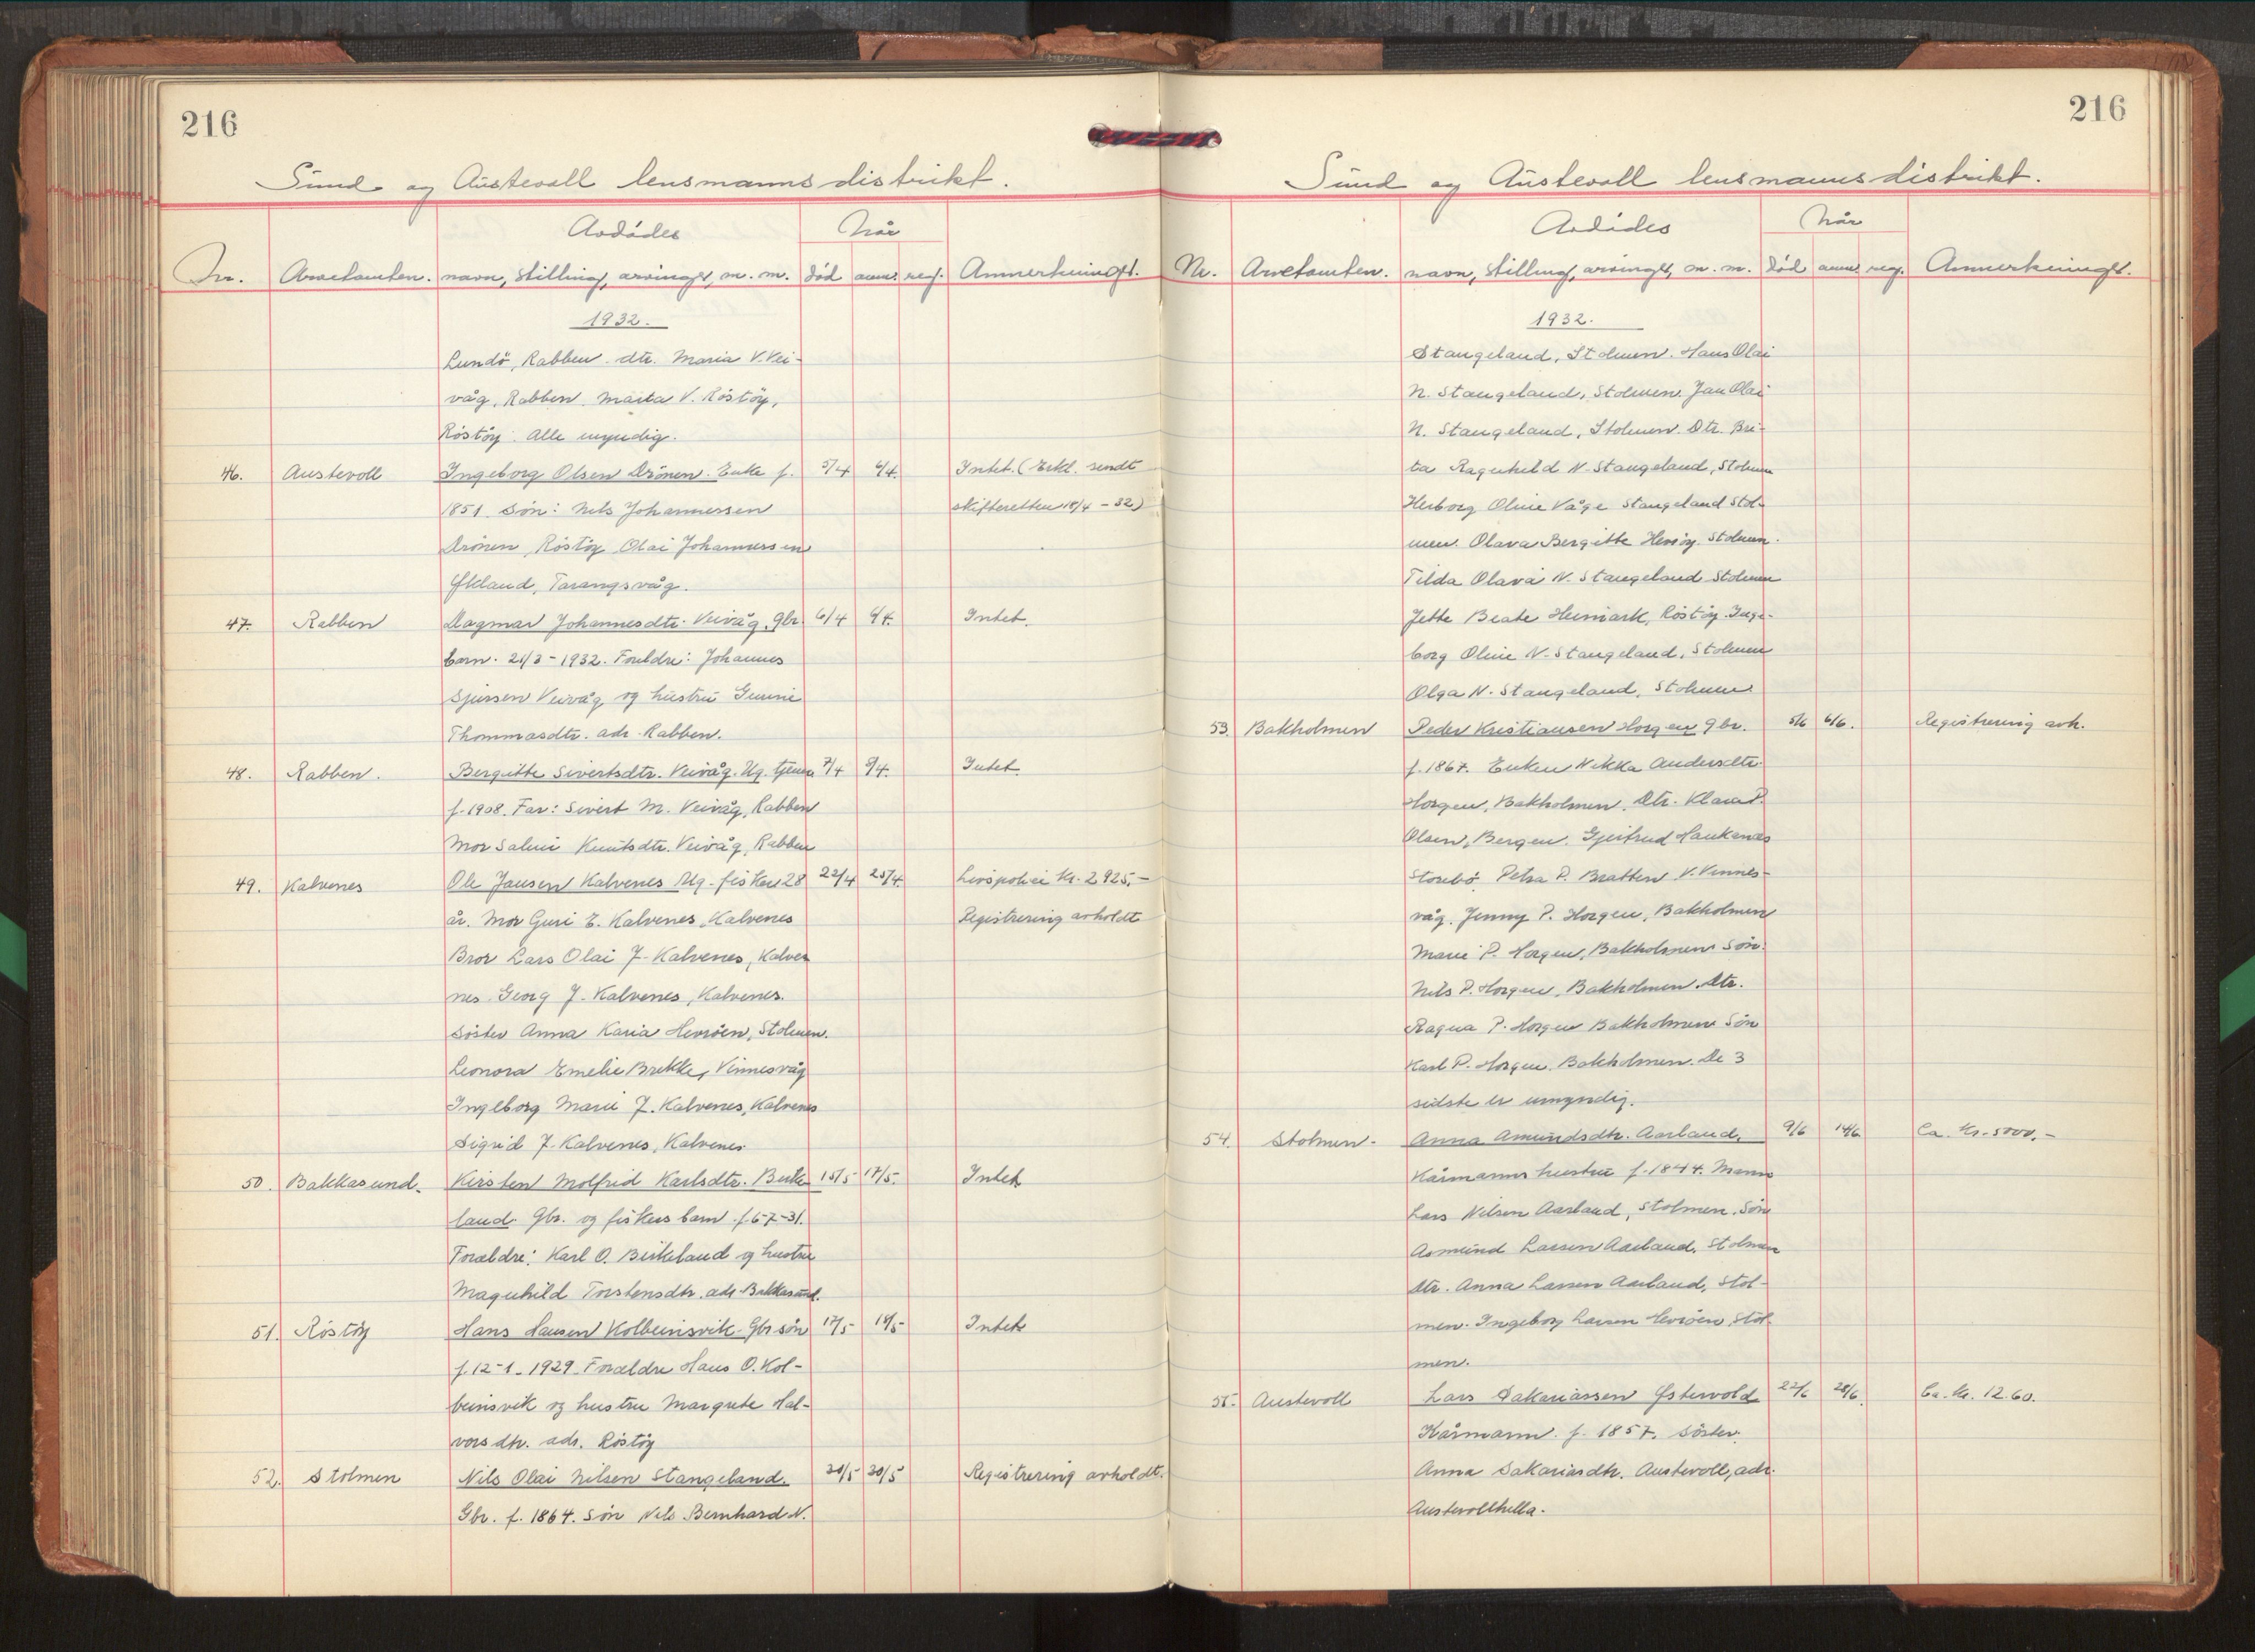 216
Sund og Austevoll lensmannsdistrikt.
Avdödes
Når
Nr. Arvetomten. navn, stilling, arvinger, m. m. död anm. reg. Anmerkninger.
1932.
Lundö, Rabben. dtr. Maria V. Vei-
våg, Rabben. Marta V. Röstöy,
Röstöy. Alle myndig.
46. Austevoll Ingeborg Olsen Drönen. Enke f. 5/4 6/4. Intet. (Erkl. sendt
1851. Sön: Nils Johannessen skifteretten 18/4 - 32)
Drönen, Röstöy Olai Johannessen
Ökland, Tarangsvåg.
47. Rabben Dagmar Johannesdtr. Veivåg. gbr. 6/4 9/4. Intet.
barn. 21/3 - 1932. Foreldre: Johannes
Sjursen Veivåg og hustru Gurine
Thommasdtr. adr. Rabben.
48. Rabben. Bergitte Sivertsdtr. Veivåg. Ug. tjener 7/4 9/4. Intet.
f. 1908. Far: Sivert M. Veivåg, Rabben
Mor Salmi Knutsdtr. Veivåg, Rabben
49. Kalvenes Ole Jansen Kalvenes Ug. fisker 28 22/4 25/4. Livspolice kr. 2925.-
år. Mor Guri E. Kalvenes, Kalvenes Registrering avholdt
Bror Lars Olai J. Kalvenes, Kalve
nes. Georg J. Kalvenes, Kalvenes.
Söster Anna Karia Hevröen, Stolmen.
Leonora Emelie Brekke, Vinnesvåg
Ingeborg Marie J. Kalvenes, Kalvenes
Sigrid J. Kalvenes, Kalvenes
50. Bakkasund. Kirsten Molfrid Karlsdtr. Birke 15/5 17/5. Intet
land. Gbr. og fiskers barn. f. 6-7-31.
Foreldre: Karl O. Birkeland og hustru
Magnhild Torstensdtr. adr. Bakkasund.
51. Röstöy Hans Hansen Kolbeinsvik. Gbr sön 17/5 19/5 Intet
f. 12-1-1929. Foreldre Hans O. Kol-
beinsvik og hustru Margrete Hal-
vorsdtr. adr. Röstöy
52. Stolmen Nils Olai Nilsen Stangeland. 30/5 30/5 Registrering avholdt.
Gbr. f. 1864. Sön Nils Bernhard N.
216
Sund og Austevoll lensmannsdistrikt.
Avdödes
Når
Nr. Arvetomten. navn, stilling, arvinger, m. m. död anm. reg. Anmerkninger.
1932.
Stangeland, Stolmen. Hans Olai
N. Stangeland, Stolmen. Jan Olai
N. Stangeland, Stolmen. Dtr. Bri-
ta Ragnhild N. Stangeland, Stolmen
Herborg Oline Våge Stangeland Stol-
men. Olava Bergitte Hevröy. Stolmen.
Tilda Olava N. Stangeland Stolmen
Jette Beate Heimark, Röstöy. Inge-
borg Oline N. Stangeland, Stolmen
Olga N. Stangeland, Stolmen
53. Bakholmen Peder Kristiansen Horgen gbr. 5/6 6/6. Registrering avh.
f. 1867. Enken Nikka Andersdtr.
Horgen, Bakholmen. Dtr. Klara P.
Olsen, Bergen. Gjertrud Haukenæs
Storebö. Petra P. Bratten V. Vinnes-
våg. Jenny P. Horgen, Bakholmen
Marie P. Horgen, Bakholmen Sön
Nils P. Horgen, Bakholmen. Dtr.
Ragna P. Horgen Bakholmen Sön
Karl P. Horgen. Bakholmen. De 3
sidste er umyndig.
54. Stolmen. Anna Amundsdtr. Aarland. 9/6 14/6 Ca. kr. 5000.-
Kårmanns hustru f. 1844. Mann
Lars Nilsen Aarland, Stolmen. Sön
Asmund Larsen Aarland, Stolmen
dtr. Anna Larsen Aarland, Stol-
men. Ingeborg Larsen Hevröen, Stol-
men.
55. Austevoll Lars Sakariassen Østervold 22/6 28/6. Ca. kr. 12.60.
Kårmann. f. 1857. Söster
Anna Sakariasdtr. Austevoll, adr.
Austevollhella.